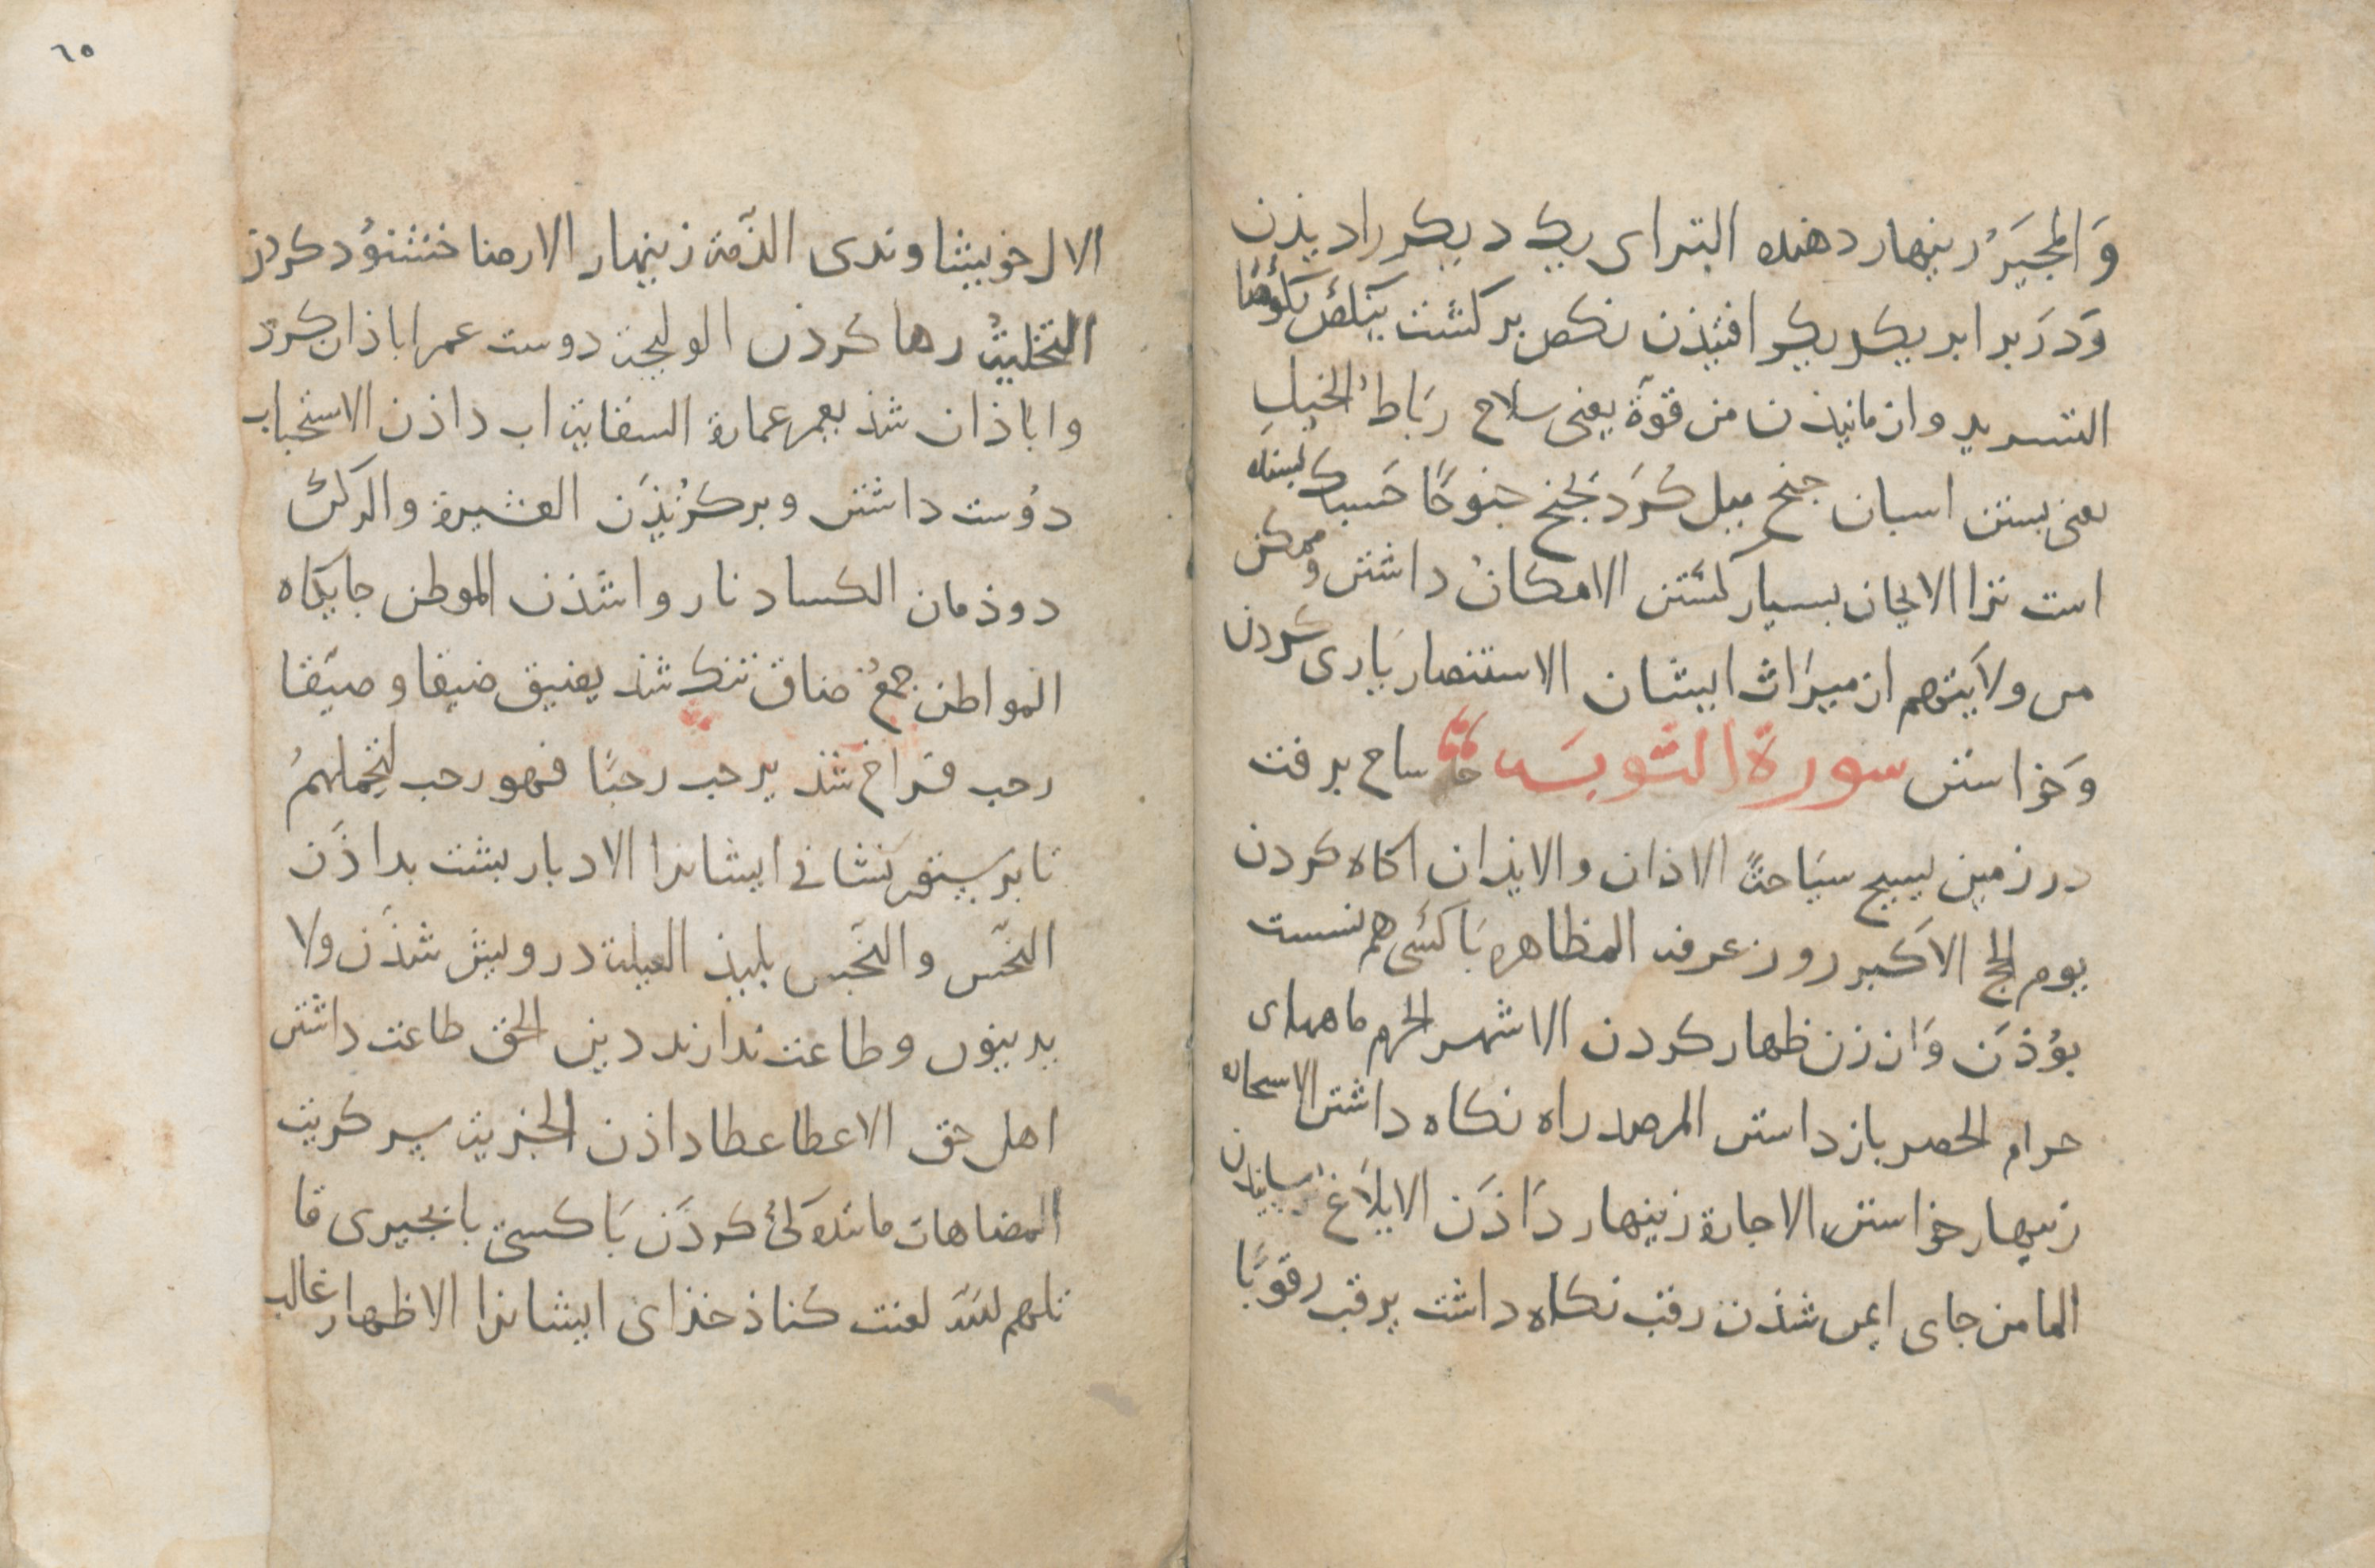 وَالمجیَرُ زینهار دهنده التراى یك دیكر را دیذن
وَدرَ برابر یكدیكر افتیذن نكص بركشت ینكص نكُوصًا
التسرید وانمانیذن من قوةٍ یعنى سلاح رباط الخیلِ
یعنى بستن اسبان جنح میل كرَد یَجنح جنوحًا حَسبك بسنده
است ترا الاثخان بسیار كشتن الامكانُ داشتن و ممكن
من ولاَیتهم از میرَاث ایشان الاستنصار یَارى كردن
وَخواستن سورة التوبَة ساح برفت
در زمین یسیح سیَاحةً الاذان والایذان اكاه كردن
یوم الحج الاكبر روز عرفه المظاهره بَا كسَى هم پشت
بوُذَن وَاز زن ظهار كردن الاشهر الحرم ماههاى
حرام الحصر باز داشتن المرصد راه نكاه داشتن الاستجاره
زینهار خواستن الاجارة زینهار دَاذَن الابلاَغ رسانیذن
المامن جاى ایمن شذن رقب نكاه داشت یرقب رقوبًا
٦٥
الال خویشاوندى الذّمة زینهار الارضا خشنوُد كردن
التخلیةُ رها كردن الولیجة دوست عمر اباذان كرد
واباذان شذ یعمر عمارة السقایة اب داذن الاستحباب
دوُست داشتن وبركزُیذَن العشیرة والركن
دوذمان الكساد ناروا شَذن الموطن جایكاه
المواطن جمعُ ضاق تنك شذ یضیق ضیقا وضیّقا
رحب فراخ شذ یرحب رحبًا فهو رحب لتحملهمُ
تا بر ستور نشانى ایشانرا الادبار پشت بداذَن
النجَس والنجَس پلیذ العیلة درویش شذَن ولا
یدینون وطاعت ندارند دین الحق طاعت داشتن
اهل حق الاعطا عطا داذن الجزیة سر كزیت
المضاهات مانندكى كردَن بَا كسى یا بچیزى قا
تلهم الله لعنت كناذ خذاى ایشانرا الاظهار غالب